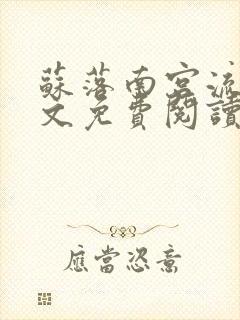 蘇落南宮流
文免費閱讀
應當恣意